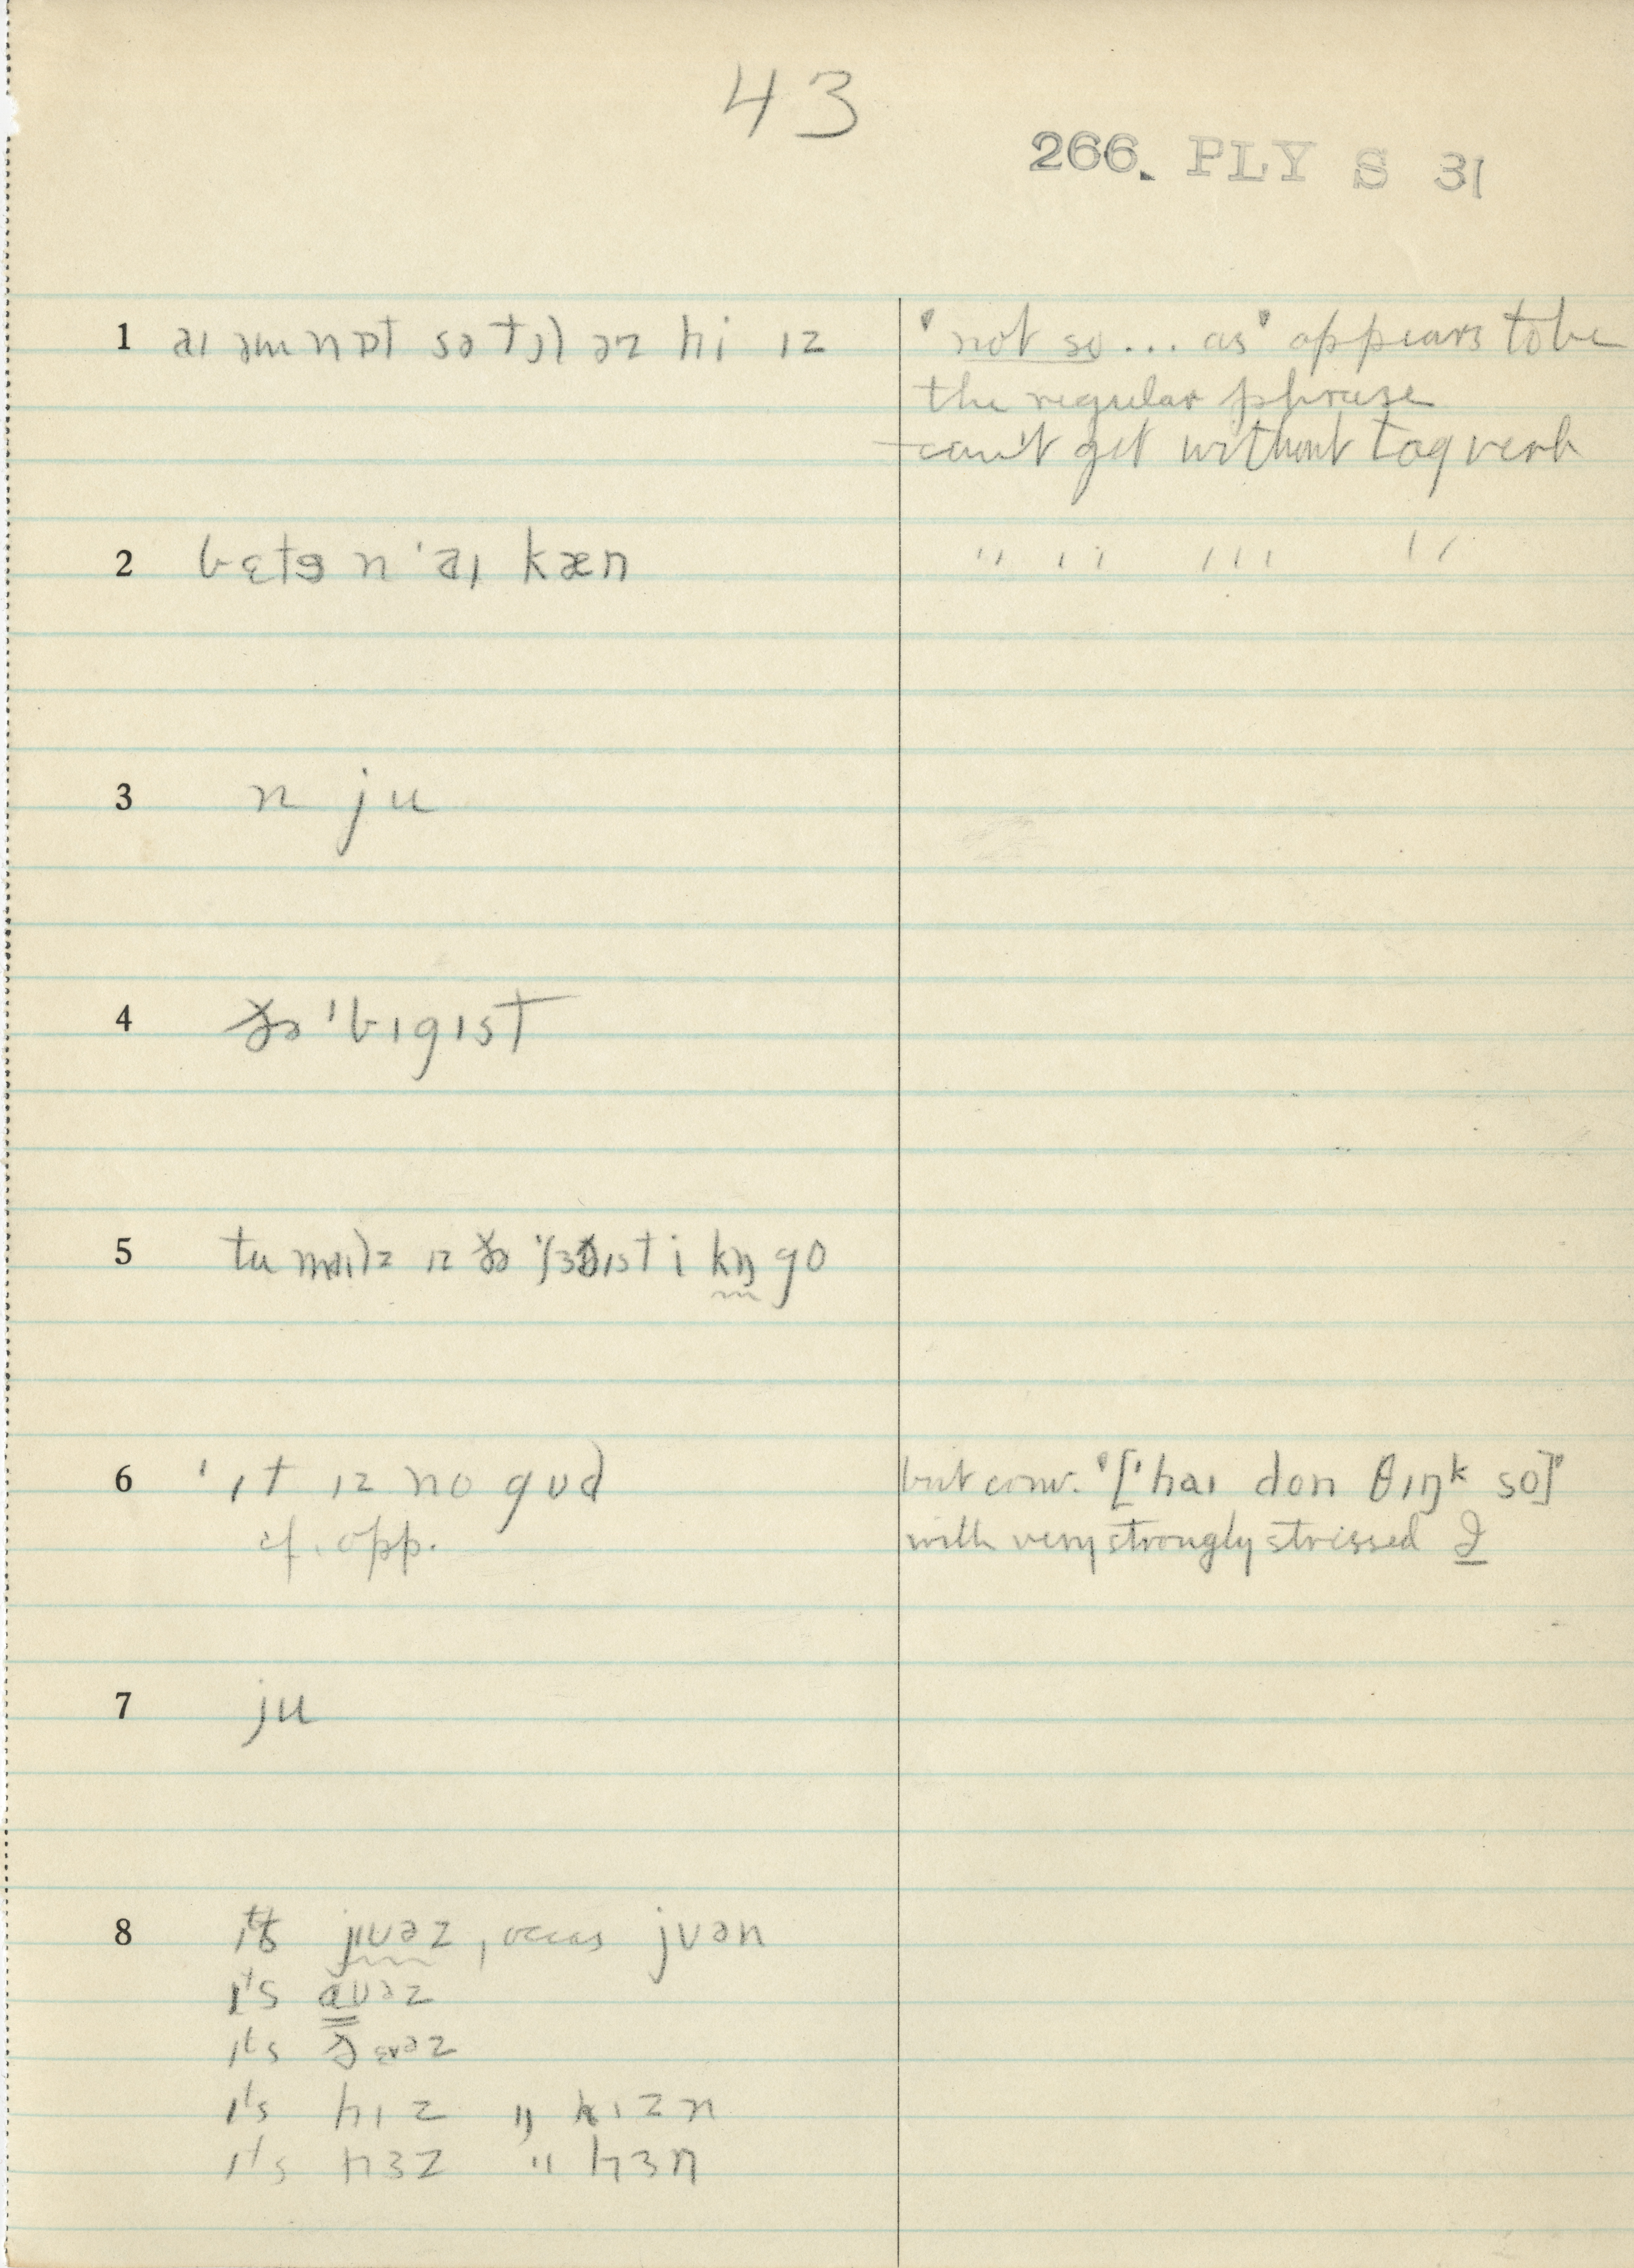 43
266. PLY S 31
1 aɪ əm nɒt sə tɔl əz hi ɪz
'not so ... as' appears to be
the regular phrase
can't get without tag verb
2 bɛtɘ n 'aɪ kæn
" " " "
3 n ju
4 ðə 'bɪgɪst
5 tu maɪlz ɪz ðə ɪst i kŋ go
6 'ɪt ɪz no gʊd
cf. opp.
but conv. '['haɪ don θɪŋᵏ so]'
with very strongly stressed I
7 ju
8 ɪts jʊəz, occas jʊən
ɪts aʊəz
ɪts ðɛəz
ɪts hɪz " hɪzn
ɪts hɜz " hɜn